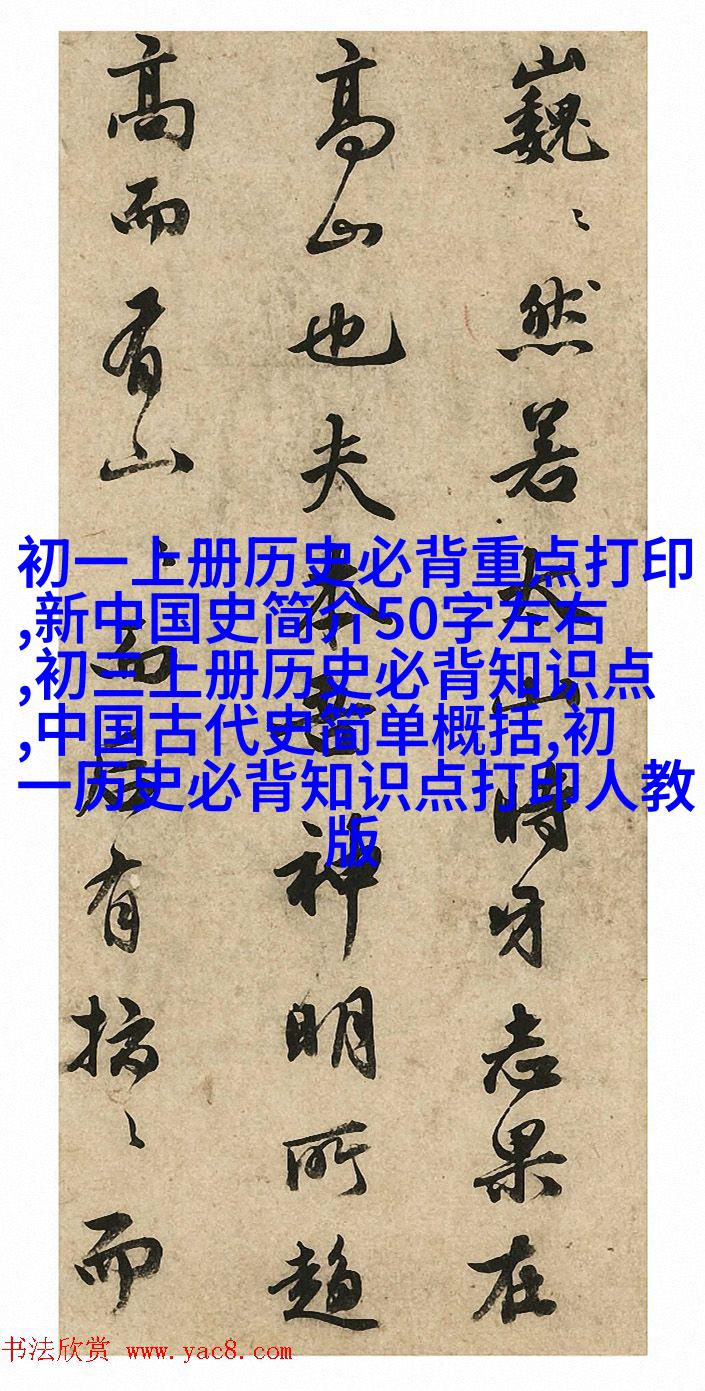 巍〻然若大山時牙志果在
高山也夫本神明所趨
高而有山〻而后有搞〻而
初一上册历史必背重点打印
,新中国史简介50字左右
,初二上册历史必背知识点
,中国古代史简单概括,初
一历史必背知识点打印人教
版
书法欣赏 www.yac8.com